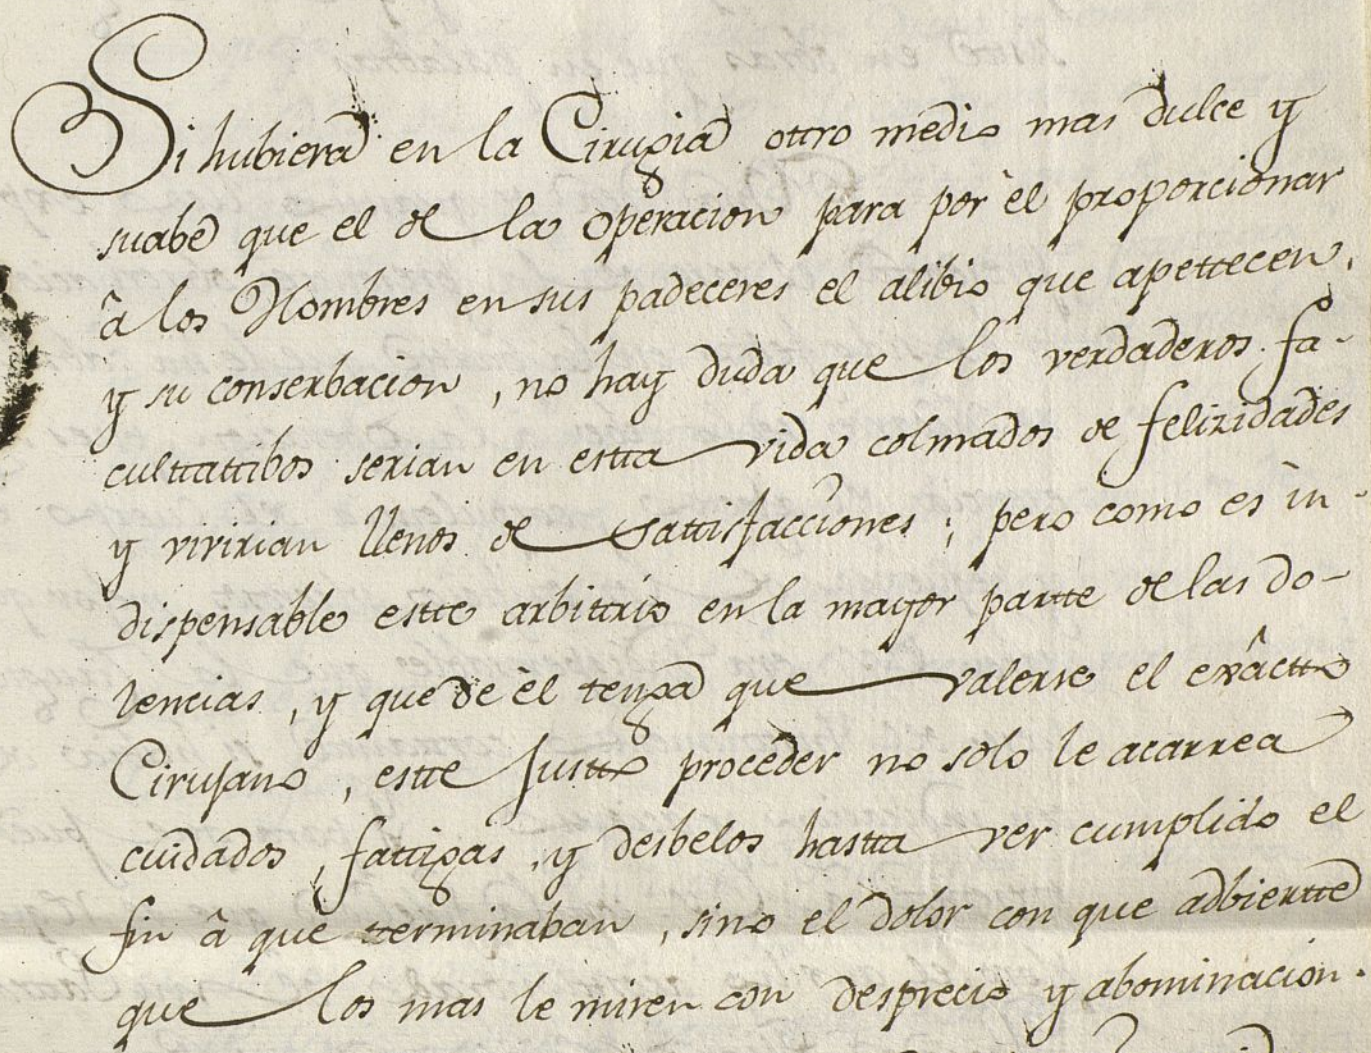 Si hubiera en la Cirugia ottro medio mas dulce y
suabe que el de la operacion para por èl proporcionar
â los Hombres en sus padeceres el alibio que apettecen,
y su conserbacion, no hay duda que los verdaderos fa-
culttattibos serian en estta vida colmados de felizidades
y vivirian llenos de Sattisfacciones; pero como es in-
dispensable estte arbittrio en la mayor partte de las do-
lencias, y que de èl tenga que valerse el exâctto
Cirujano, estte justto proceder no solo le acarrea
cuidados, fattigas, y desbelos hastta ver cumplido el
fin â que tterminaban, sino el dolor con que adbiertte
que los mas le miren con desprecio y abominacion.